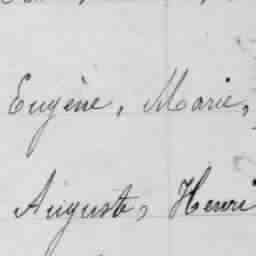 Eugène, Marie,
Auguste, Henri